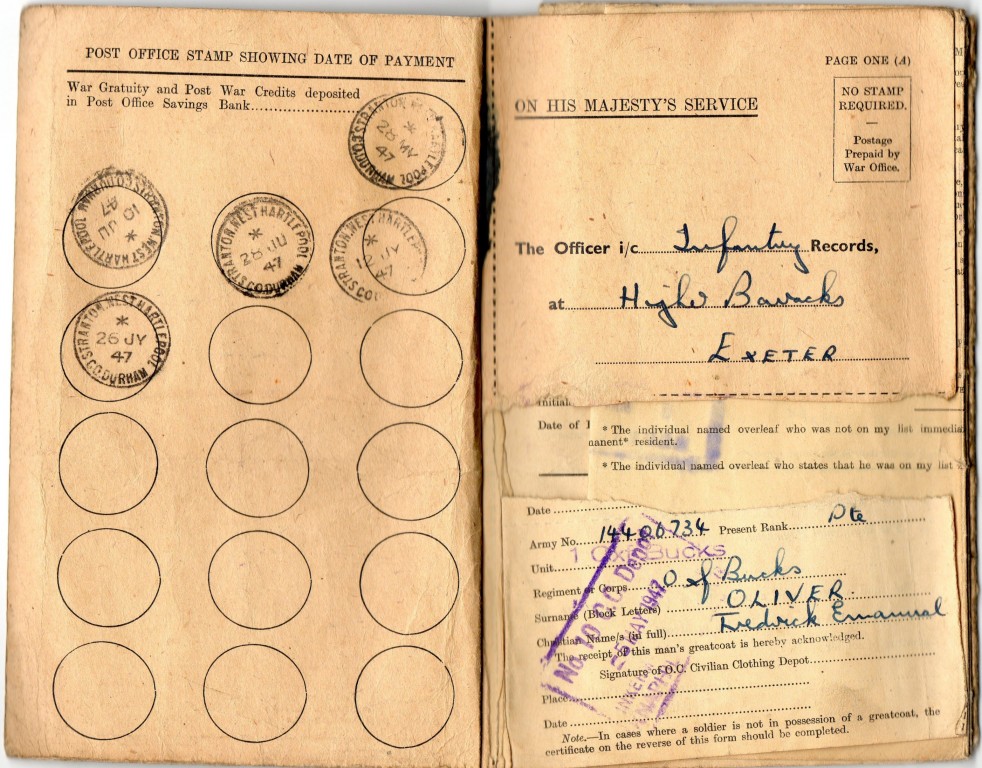 POST OFFICE STAMP SHOWING DATE OF PAYMENT
War Gratuity and Post War Credits deposited
in Post Office Savings Bank
STRANTON, WEST HARTLEPOOL
CO. DURHAM
28 MY
47
STRANTON, WEST HARTLEPOOL
CO. DURHAM
10 JU
47
STRANTON, WEST HARTLEPOOL
CO. DURHAM
28 JU
47
STRANTON, WEST HARTLEPOOL
12 JY
47
STRANTON, WEST HARTLEPOOL
CO. DURHAM
26 JY
47
PAGE ONE (A)
ON HIS MAJESTY'S SERVICE
NO STAMP
REQUIRED.
—
Postage
Prepaid by
War Office.
The Officer i/c Infantry Records,
at Higher Barracks
EXETER
Initial
Date of
* The individual named overleaf who was not on my list immedia
nanent* resident.
* The individual named overleaf who states that he was on my list
Date
Army No. 14406734 Present Rank Pte
Unit 1 Oxf Bucks
Regiment or Corps Oxf Bucks
Surname (Block Letters) OLIVER
Christian Name/s (in full) Fredrick Emanual
The receipt of this man's greatcoat is hereby acknowledged.
Signature of O.C. Civilian Clothing Depot
Place
Date
Note.—In cases where a soldier is not in possession of a greatcoat, the
certificate on the reverse of this form should be completed.
No. 10 C.C. Depot
MAY 1947